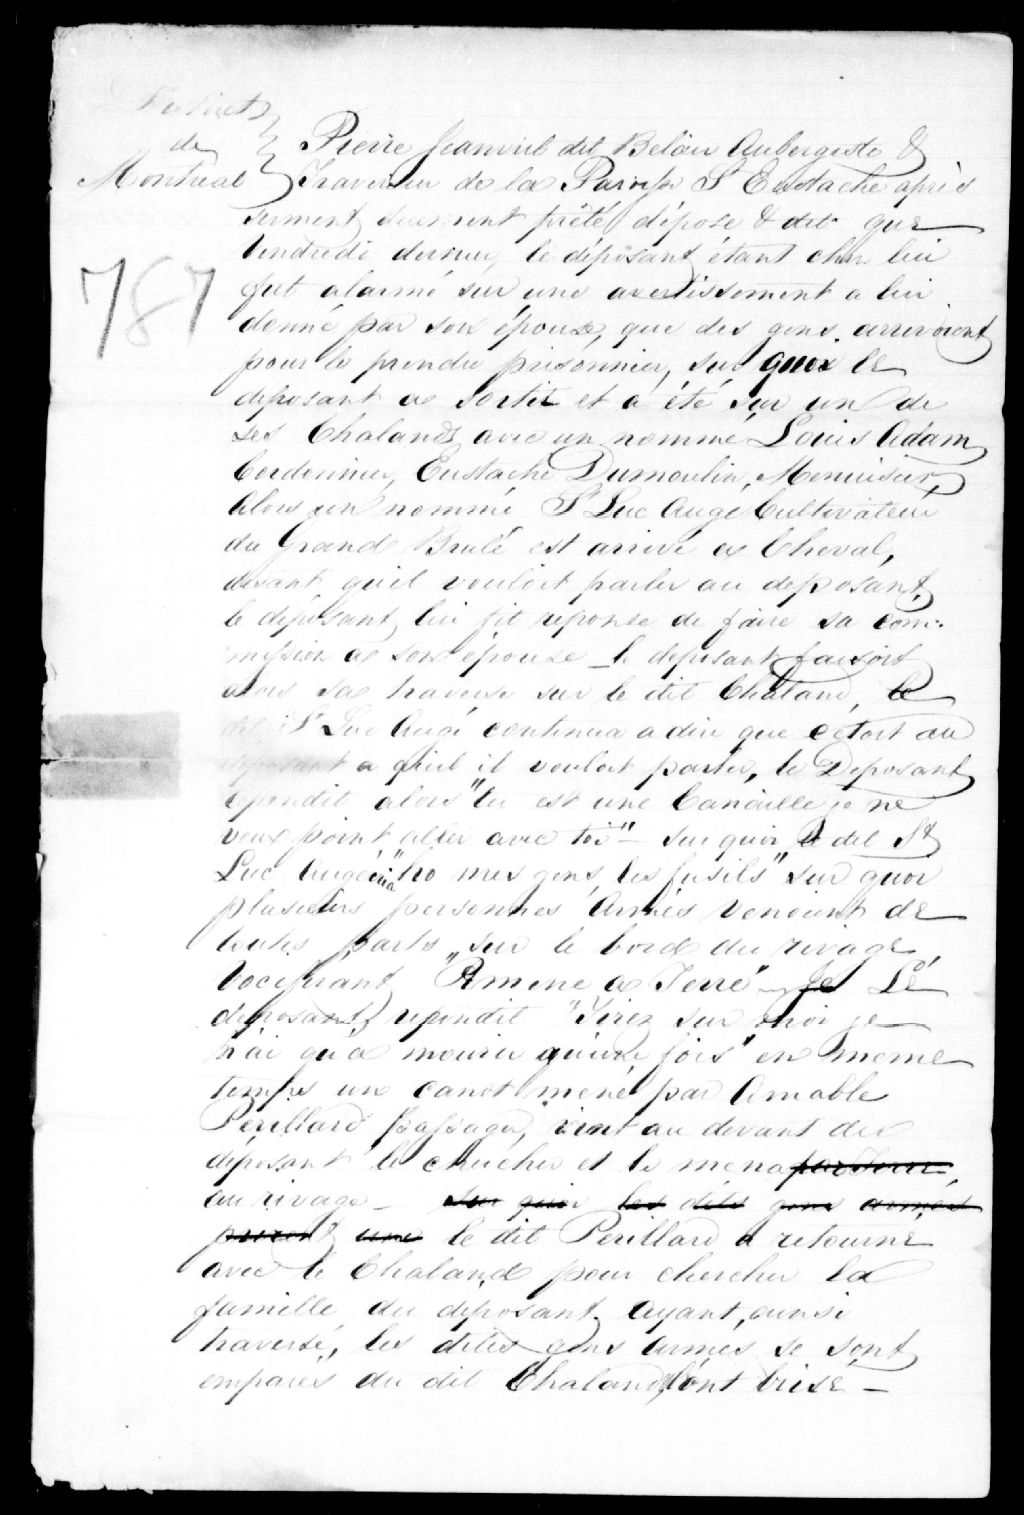 District
de
Montreal
787
Pierre Jeanvril dit Belair Aubergiste &
Traversier de la Paroisse St Eustache après
serment dument prêté dépose & dit que
Vendredi dernier, le déposant étant chez lui
fut alarmé sur une avertissement a lui
donné par son épouse, que des gens arrivoient
pour le prendre prisonnier, sur quoi le
deposant a sortit et a été sur un de
ses Chalands avec un nommé Louis Adam
Cordonnier, Eustache Dumoulin, Menuisier,
Alors un nommé St Luc Augé Cultivateur
du Grand Brulé est arrivé a Cheval,
disant qu'il vouloit parler au deposant,
le déposant lui fit reponse de faire sa com-
mission a son épouse _ le deposant faisoit
alors sa traverse sur le dit Chaland, le
dit St Luc Augé continua a dire que c'etoit au
deposant a qui il vouloit parler, le Deposant
repondit alors "tu est une Canaille je ne
veux point aller avec toi" - sur quoi le dit St
Luc Augé cria "ho mes gens, les fusils" sur quoi
plusieurs personnes Armés venoient de
toutes parts sur le bord du rivage,
Vociferant "Amene a Terre" Le
déposant repondit "Tirez sur moi je
n'ai qu'a mourir qu'une fois" en meme
temps un canot mené par Amable
Perillard passager, vint au devant du
déposant le chercher et le mena par Terre,
au rivage - sur quoi les dits gens armés
prirent une le dit Perillard a retourné
avec le Chaland pour chercher la
famille du deposant. Ayant, ainsi
traversé, les dites gens Armés se sont
emparés du dit Chaland, l'ont brisé -